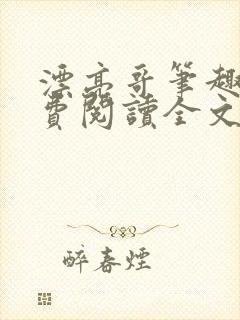 漂亮哥笔趣
費閱讀全文
醉春煙